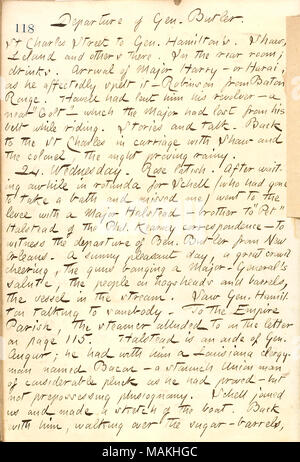 118
Departure of Gen. Butler.
St Charles Street to Gen. Hamilton's. Shaw,
Leland and others there. In the rear room;
drinks. Arrival of Major Harry - or Harai,
as he affectedly spelt it - Robinson from Baton
Rouge. Howell had lent him his revolver - a
new Colt - which the Major had lost from his
belt while riding. Stories and talk. Back
to the St Charles in carriage with Shaw and
the colonel, the night proving rainy.
24. Wednesday. Rose latish. After wait-
ing awhile in rotunda for Schell (who had gone
to take a bath and missed me) went to the
levee with a Major Halstead - brother to "Pet"
Halstead of the Phil. Kearney correspondence - to
witness the departure of Ben. Butler from New
Orleans. A sunny pleasant day, a great crowd
cheering, the guns banging a Major-General's
salute, the people on hogsheads and barrels,
the vessel in the stream. Saw Gen. Hamil-
ton talking to somebody. To the Empire
Parish, the steamer alluded to in the letter
on page 115. Halstead is an aide of Gen.
Augur; he had with him a Louisiana clergy-
man named Bacon - a staunch Union man
of considerable pluck as he had proved - but
not prepossessing physiognomy. Schell joined
us and made a sketch of the boat. Back
with him, walking over the sugar-barrels,
alamy
Image ID: MAKHGC
www.alamy.com